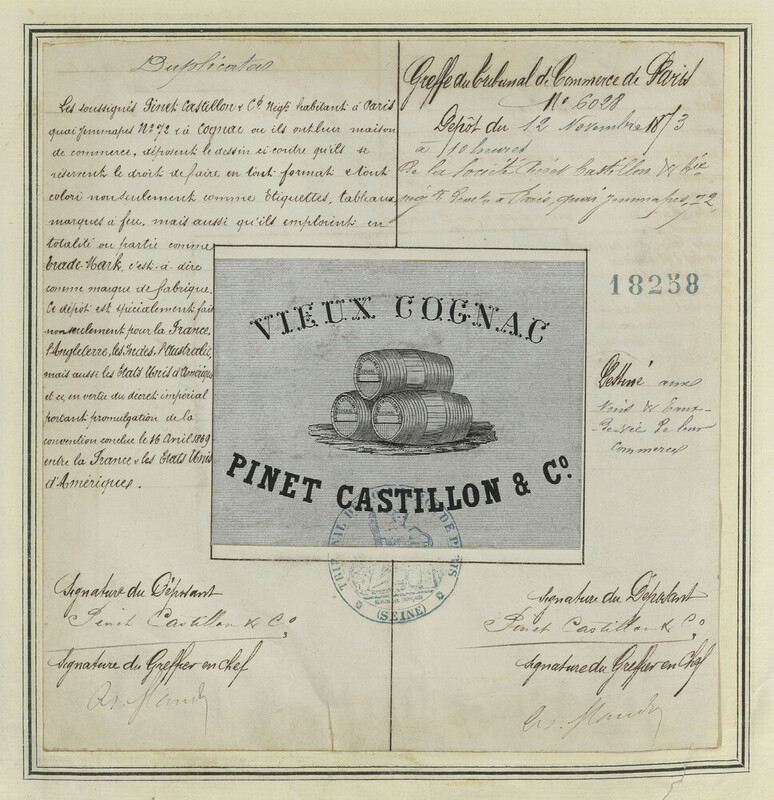 Duplicata
Les soussignés Pinet Castillon & Cie Négts habitant à Paris
quai Jemmapes No 72 & à Cognac ou ils ont leur maison
de commerce, déposent le dessin ci contre qu'ils se
réservent le droit de faire en tout format & tout
colori non seulement comme Etiquettes, tableaux
marques à feu, mais aussi qu'ils emploient en
totalité ou partie comme
Trade-Mark, c'est-à dire
comme marque de fabrique.
Ce dépôt est spécialement fait
non seulement pour la France,
l'Angleterre, les Indes, l'Australie,
mais aussi les Etats Unis d'Amérique
et ce, en vertu du décret impérial
portant promulgation de la
convention conclue le 16 Avril 1869
entre la France & les Etats Unis
d'Amériques.
Signature du Déposant
Pinet Castillon & Co
Signature du Greffier en chef
Greffe du Tribunal de Commerce de Paris
No 6028
Dépôt du 12 Novembre 1873
à 10 heures
De la Société Pinet Castillon & Cie
à Paris, quai Jemmapes, 72,
18258
Destiné aux
vins & Eaux-
-de-vie de leur
commerce
VIEUX COGNAC
PINET CASTILLON & Co.
TRIBUNAL DE COMMERCE DE PARIS
(SEINE)
Signature du Déposant
Pinet Castillon & Co
Signature du Greffier en Chef